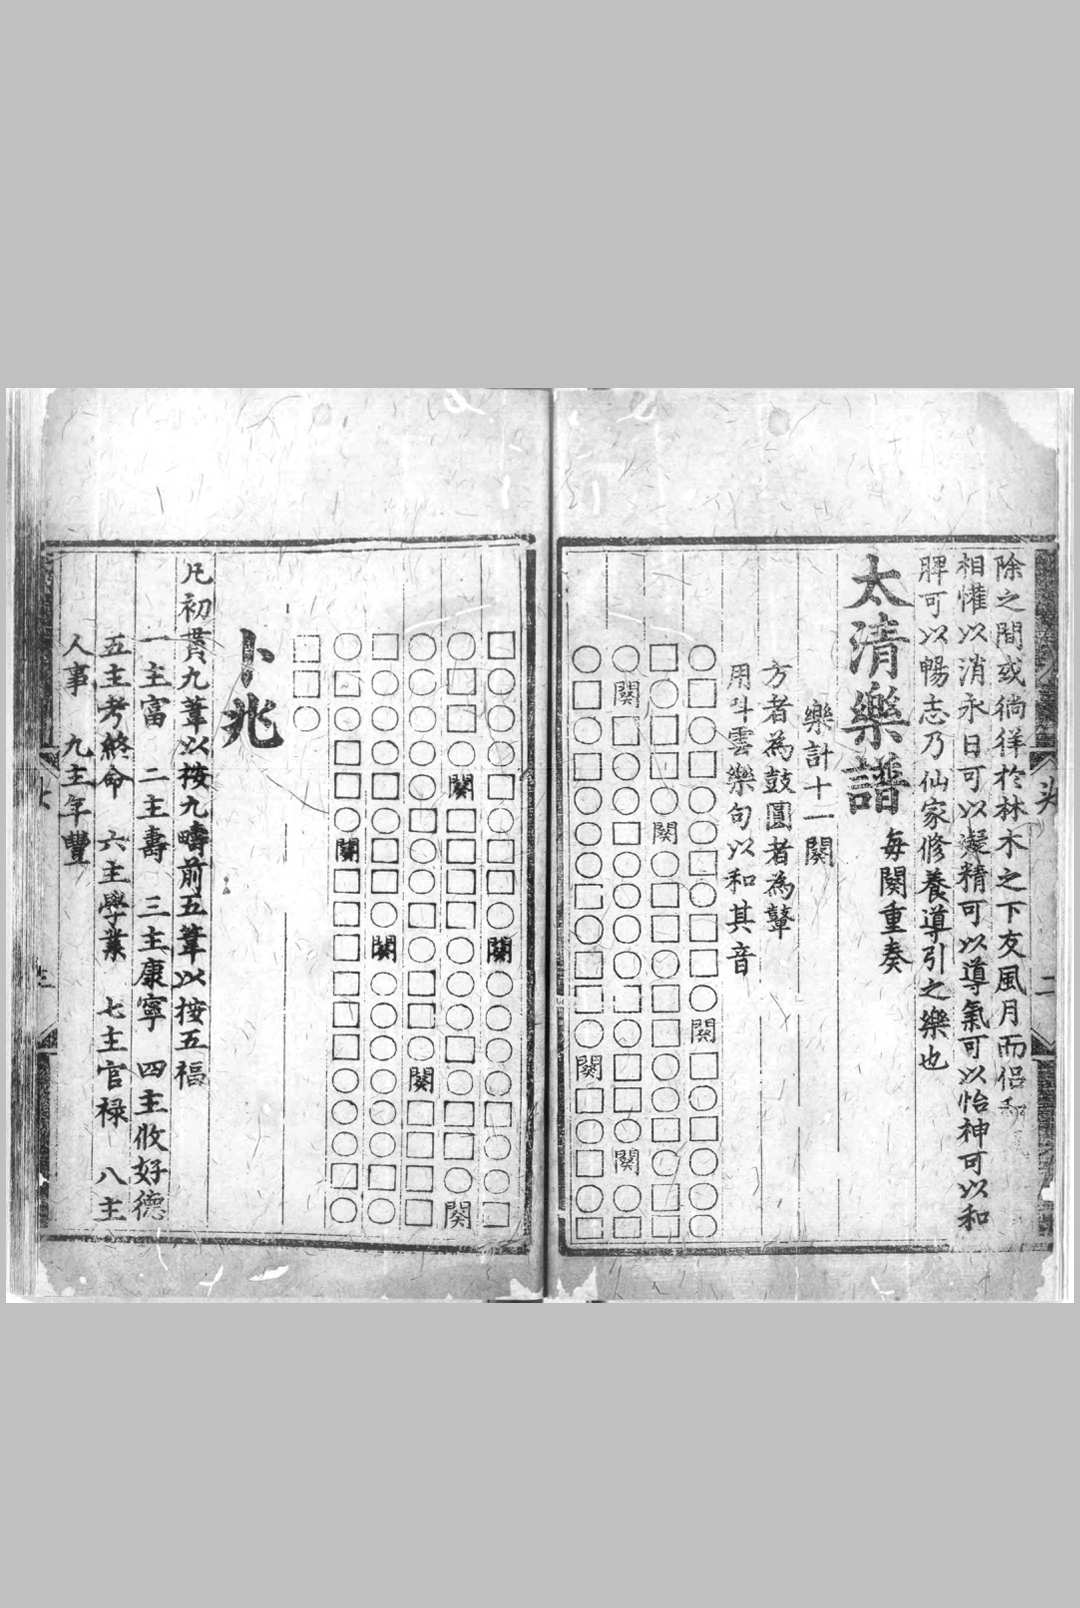 除之間或徜徉於林木之下友風月而侶
相懽以消永日可以凝精可以導氣可以怡神可以和
脾可以暢志乃仙家修養導引之樂也
太清樂譜 每闋重奏
樂計十二闋
方者為鼓圓者為鼙
用斗雲樂句以和其音
○□□□○○□○□□○闋□○□○○○
□○□□○闋○□□○□□○□□○□□
○闋□○○□○□○○□○□□○闋○□
○□○□○○○□○□□○闋□○□○□
□○○○□○□□○闋○○○○□○○□
○○□○闋○□□○○○○□○□□○闋
○○○□○□□○○○□□○闋□□○□
□○○□□○□□○闋○○○○○○□○
○○○□□○闋□□□□□□○○○□○
□□○
卜兆
凡初貫九葦以按九疇前五葦以按五福
一主富 二主壽 三主康寧 四主攸好德
五主考終命 六主學業 七主官祿 八主
人事 九主年豐